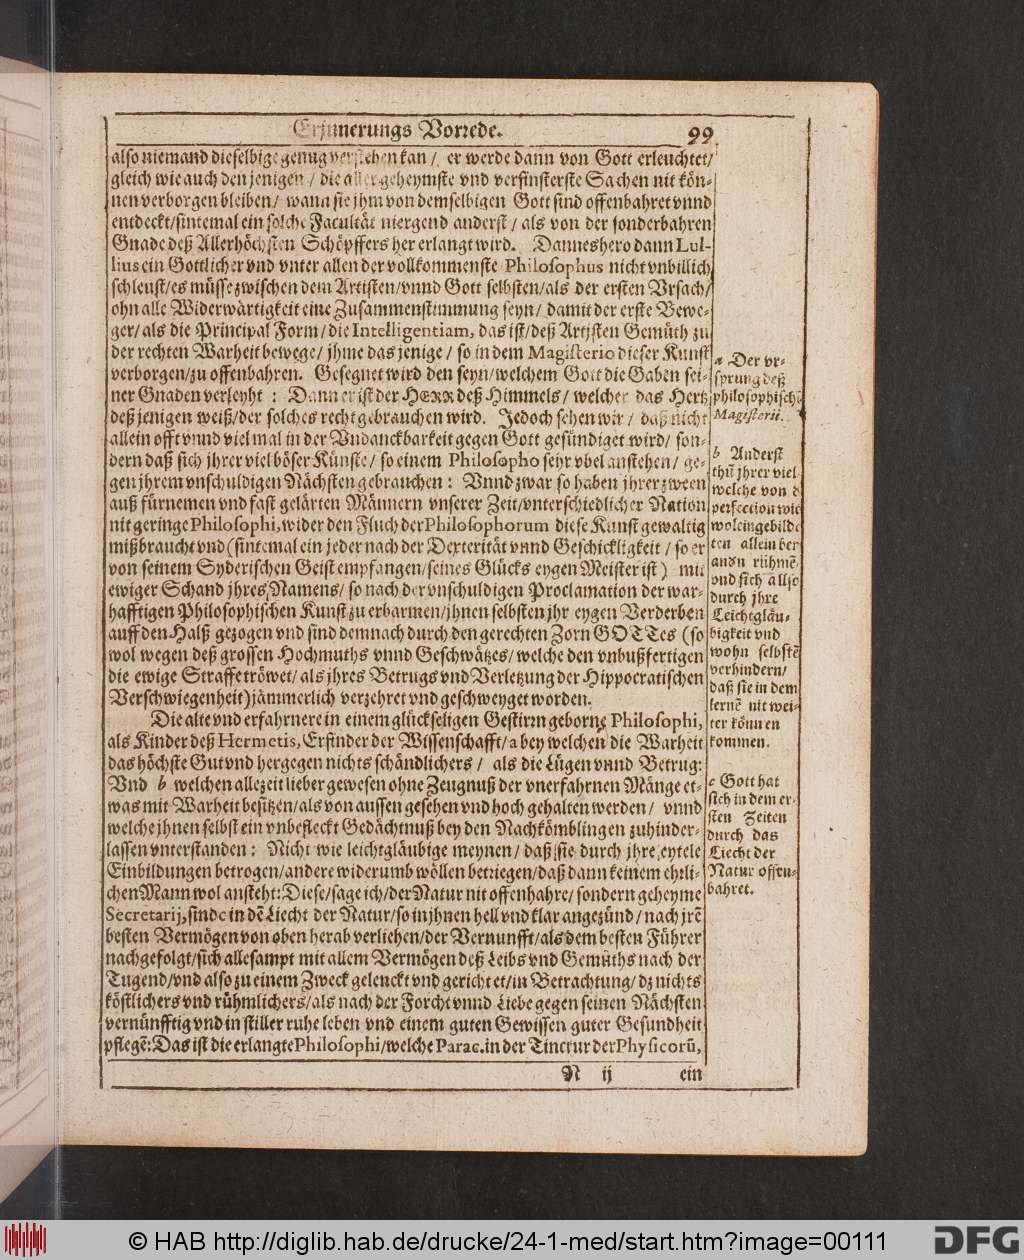 Erjnnerungs Vorrede. 99
also niemand dieselbige genug verstehen kan / er werde dann von Gott erleuchtet/
gleich wie auch den jenigen / die aller geheymste vnd verfinsterste Sachen nit kön-
nen verborgen bleiben / wann sie jhm von demselbigen Gott sind offenbahret vnnd
entdeckt/sintemal ein solche Facultät niergend anderst / als von der sonderbahren
Gnade deß Allerhöchsten Schöpffers her erlangt wird. Danneshero dann Lul-
lius ein Gottlicher vnd vnter allen der vollkommenste Philosophus nicht vnbillich
schleust/es müsse zwischen dem Artisten/vnnd Gott selbsten/als der ersten Vrsach/
ohn alle Widerwärtigkeit eine Zusammenstimmung seyn / damit der erste Bewe-
ger/als die Principal Form/die Intelligentiam, das ist/deß Artjsten Gemüth zu
der rechten Warheit bewege / jhme das jenige / so in dem Magisterio dieser Kunst
verborgen/zu offenbahren. Gesegnet wird den seyn/welchem Gott die Gaben sei-
ner Gnaden verleyht : Dann er ist der HERR deß Himmels / welcher das Hertz
deß jenigen weiß/der solches recht gebrauchen wird. Jedoch sehen wir / daß nicht
allein offt vnnd viel mal in der Vndanckbarkeit gegen Gott gesündiget wird / son-
dern daß sich jhrer viel böser Künste / so einem Philosopho sehr vbel anstehen / ge-
gen jhrem vnschuldigen Nächsten gebrauchen : Vnnd zwar so haben jhrer zween
auß fürnemen vnd fast gelärten Männern vnserer Zeit/vnterschiedlicher Nation
nit geringe Philosophi, wider den Fluch der Philosophorum diese Kunst gewaltig
mißbraucht vnd (sintemal ein jeder nach der Dexterität vnnd Geschickligkeit / so er
von seinem Syderischen Geist empfangen / seines Glücks eygen Meister ist) mit
ewiger Schand jhres Namens / so nach der vnschuldigen Proclamation der war-
hafftigen Philosophischen Kunst zu erbarmen/jhnen selbsten jhr eygen Verderben
auff den Halß gezogen vnd sind demnach durch den gerechten Zorn GOTTes (so
wol wegen deß grossen Hochmuths vnnd Geschwätzes/welche den vnbußfertigen
die ewige Straffe tröwet/als jhres Betrugs vnd Verletzung der Hippocratischen
Verschwiegenheit) jämmerlich verzehret vnd geschweyget worden.
Die alte vnd erfahrnere in einem glückseligen Gestirrn geborne Philosophi,
als Kinder deß Hermetis, Erfinder der Wissenschafft / a bey welchen die Warheit
das höchste Gut vnd hergegen nichts schändlichers / als die Lügen vnnd Betrug:
Vnd b welchen allezeit lieber gewesen ohne Zeugnuß der vnerfahrnen Mänge et-
was mit Warheit besitzen/als von aussen gesehen vnd hoch gehalten werden / vnnd
welche jhnen selbst ein vnbefleckt Gedächtnuß bey den Nachkömblingen zuhinder-
lassen vnterstanden : Nicht wie leichtgläubige meynen / daß sie durch jhre eytele
Einbildungen betrogen/andere widerumb wöllen betriegen/daß dann keinem ehrli-
chen Mann wol ansteht: Diese/sage ich/der Natur nit offenbahre/sondern geheyme
Secretarij, sind c in dē Liecht der Natur/so in jhnen hell vnd klar angezünd/nach jrē
besten Vermögen von oben herab verliehen/der Vernunfft/als dem besten Führer
nachgefolgt/sich allesampt mit allem Vermögen deß Leibs vnd Gemüths nach der
Tugend/vnd also zu einem Zweck gelenckt vnd gericht et/in Betrachtung/dz nichts
köstlichers vnd rühmlichers/als nach der Forcht vnnd Liebe gegen seinen Nächsten
vernünfftig vnd in stiller ruhe leben vnd einem guten Gewissen guter Gesundheit
pflegē: Das ist die erlangte Philosophi/welche Parac. in der Tinctur der Physicorū,
N ij ein
a Der vr-
sprung deß
philosophischē
Magisterii.
b Anderst
thū jhrer viel
welche von d
perfection wie
wol eingebilde
ten allein ber
andn rühmē
vnd sich allso
durch jhre
Leichtgläu-
bigkeit vnd
wohn selbstē
verhindern/
daß sie in dem
lernē nit wei-
ter können
kommen.
c Gott hat
sich in dem er-
sten Zeiten
durch das
Liecht der
Natur offen-
bahret.
© HAB http://diglib.hab.de/drucke/24-1-med/start.htm?image=00111
DFG